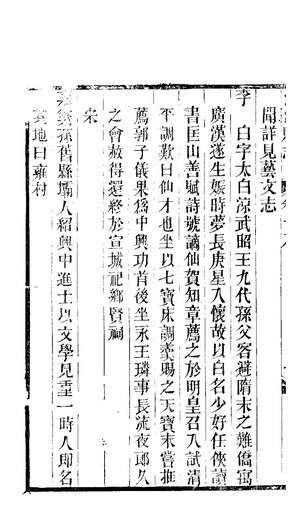 聞詳見藝文志
李 白字太白涼武昭王九代孫父容避隋末之難僑寓
廣漢遂娠生蒔夢長庚星入懷故以白名少好任俠讀
書匡山善賦詩號謫仙賀知章薦之於明皇召入試清
平調歎曰仙才也坐以七寶床調羹賜之天寶末嘗推
薦郭子儀果爲中興功首後坐永王璘事長流夜郎久
之會赦得還終於宣城祀鄉賢祠
宋
孫舊縣壩人紹興中進士以文學見重一時人卽名
其地曰雍村